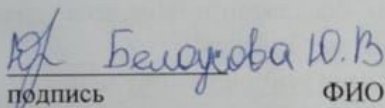 Белоусова Ю.В
подпись ФИО